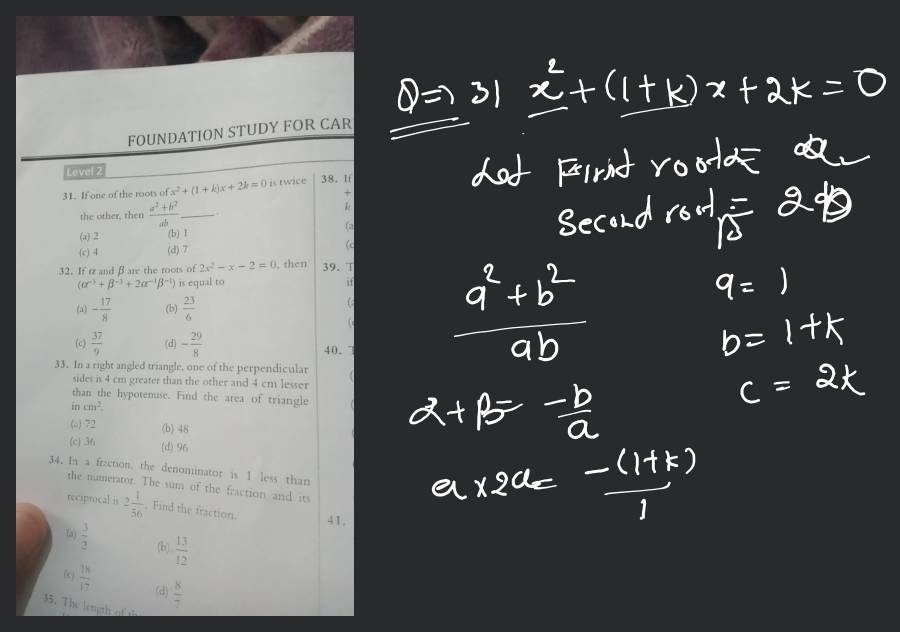 FOUNDATION STUDY FOR CAR
Level 2
31. If one of the roots of x² + (1 + k)x + 2k = 0 is twice
the other, then a² + b² / ab ______.
(a) 2 (b) 1
(c) 4 (d) 7
32. If α and β are the roots of 2x² − x − 2 = 0, then
(α⁻³ + β⁻³ + 2α⁻¹β⁻¹) is equal to
(a) − 17/8 (b) 23/6
(c) 37/9 (d) − 29/8
33. In a right angled triangle, one of the perpendicular
sides is 4 cm greater than the other and 4 cm lesser
than the hypotenuse. Find the area of triangle
in cm².
(a) 72 (b) 48
(c) 36 (d) 96
34. In a fraction, the denominator is 1 less than
the numerator. The sum of the fraction and its
reciprocal is 2 1/56. Find the fraction.
(a) 3/2 (b) 13/12
(c) 18/17 (d) 8/7
35. The length of
38. If
+
k
(a
(c
39. T
if
40.
41.
Q=> 31 x² + (1+k)x + 2k = 0
Let First root α =
Second root = 2
β
a² + b² / ab
a = 1
b = 1+k
c = 2k
α + β = -b/a
a x 2a = -(1+k)/1